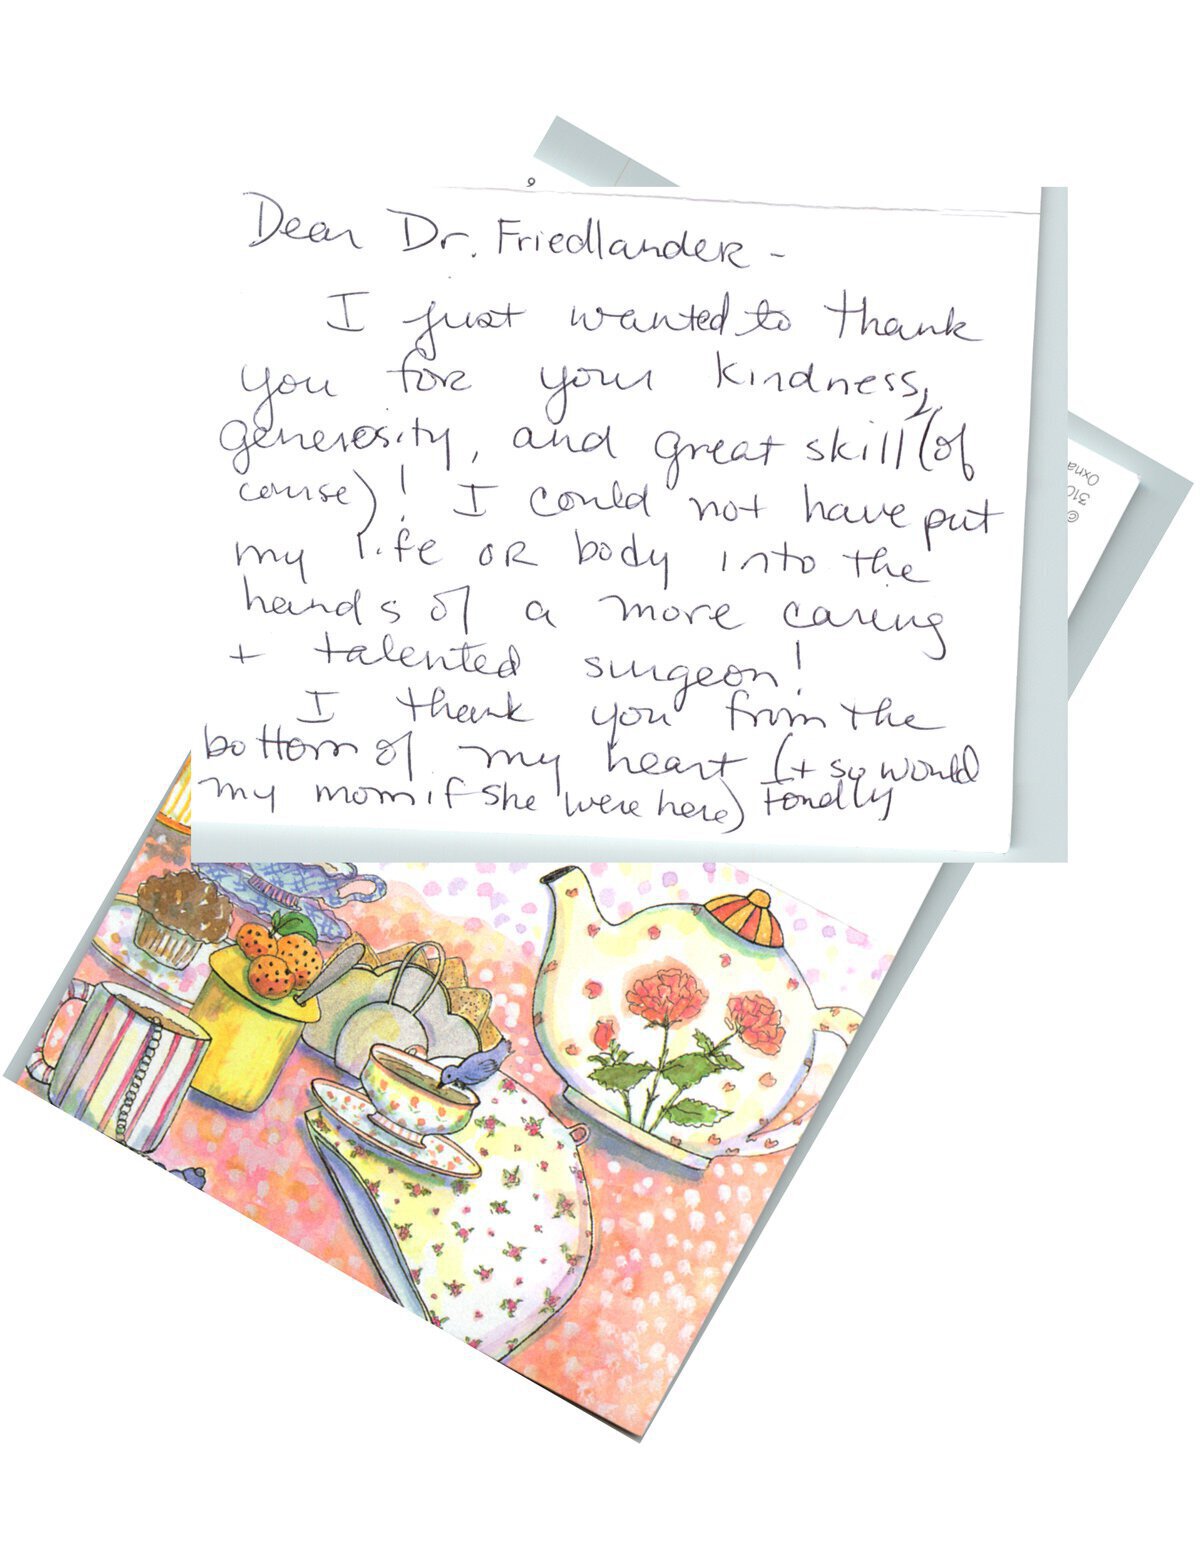 Dear Dr. Friedlander -
I just wanted to thank
you for your kindness,
generosity, and great skill (of
course)! I could not have put
my life or body into the
hands of a more caring
+ talented surgeon!
I thank you from the
bottom of my heart (+ so would
my mom if she were here) Fondly
©
310
Oxna